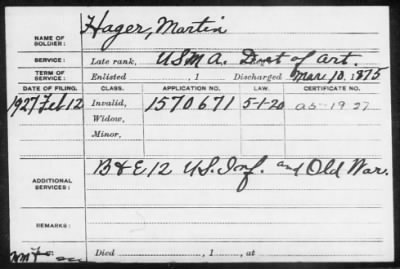 NAME OF SOLDIER: Hager, Martin
SERVICE: Late rank, USMA. Det of Art.
TERM OF SERVICE: Enlisted , 1 Discharged Mar. 10, 1875
DATE OF FILING. CLASS. APPLICATION NO. LAW. CERTIFICATE NO.
1927 Feb 12 Invalid, 1570671 5-1-20
Widow,
Minor,
ADDITIONAL SERVICES: B & E 12 U.S. Inf. and Old War.
REMARKS:
Died , 1 , at